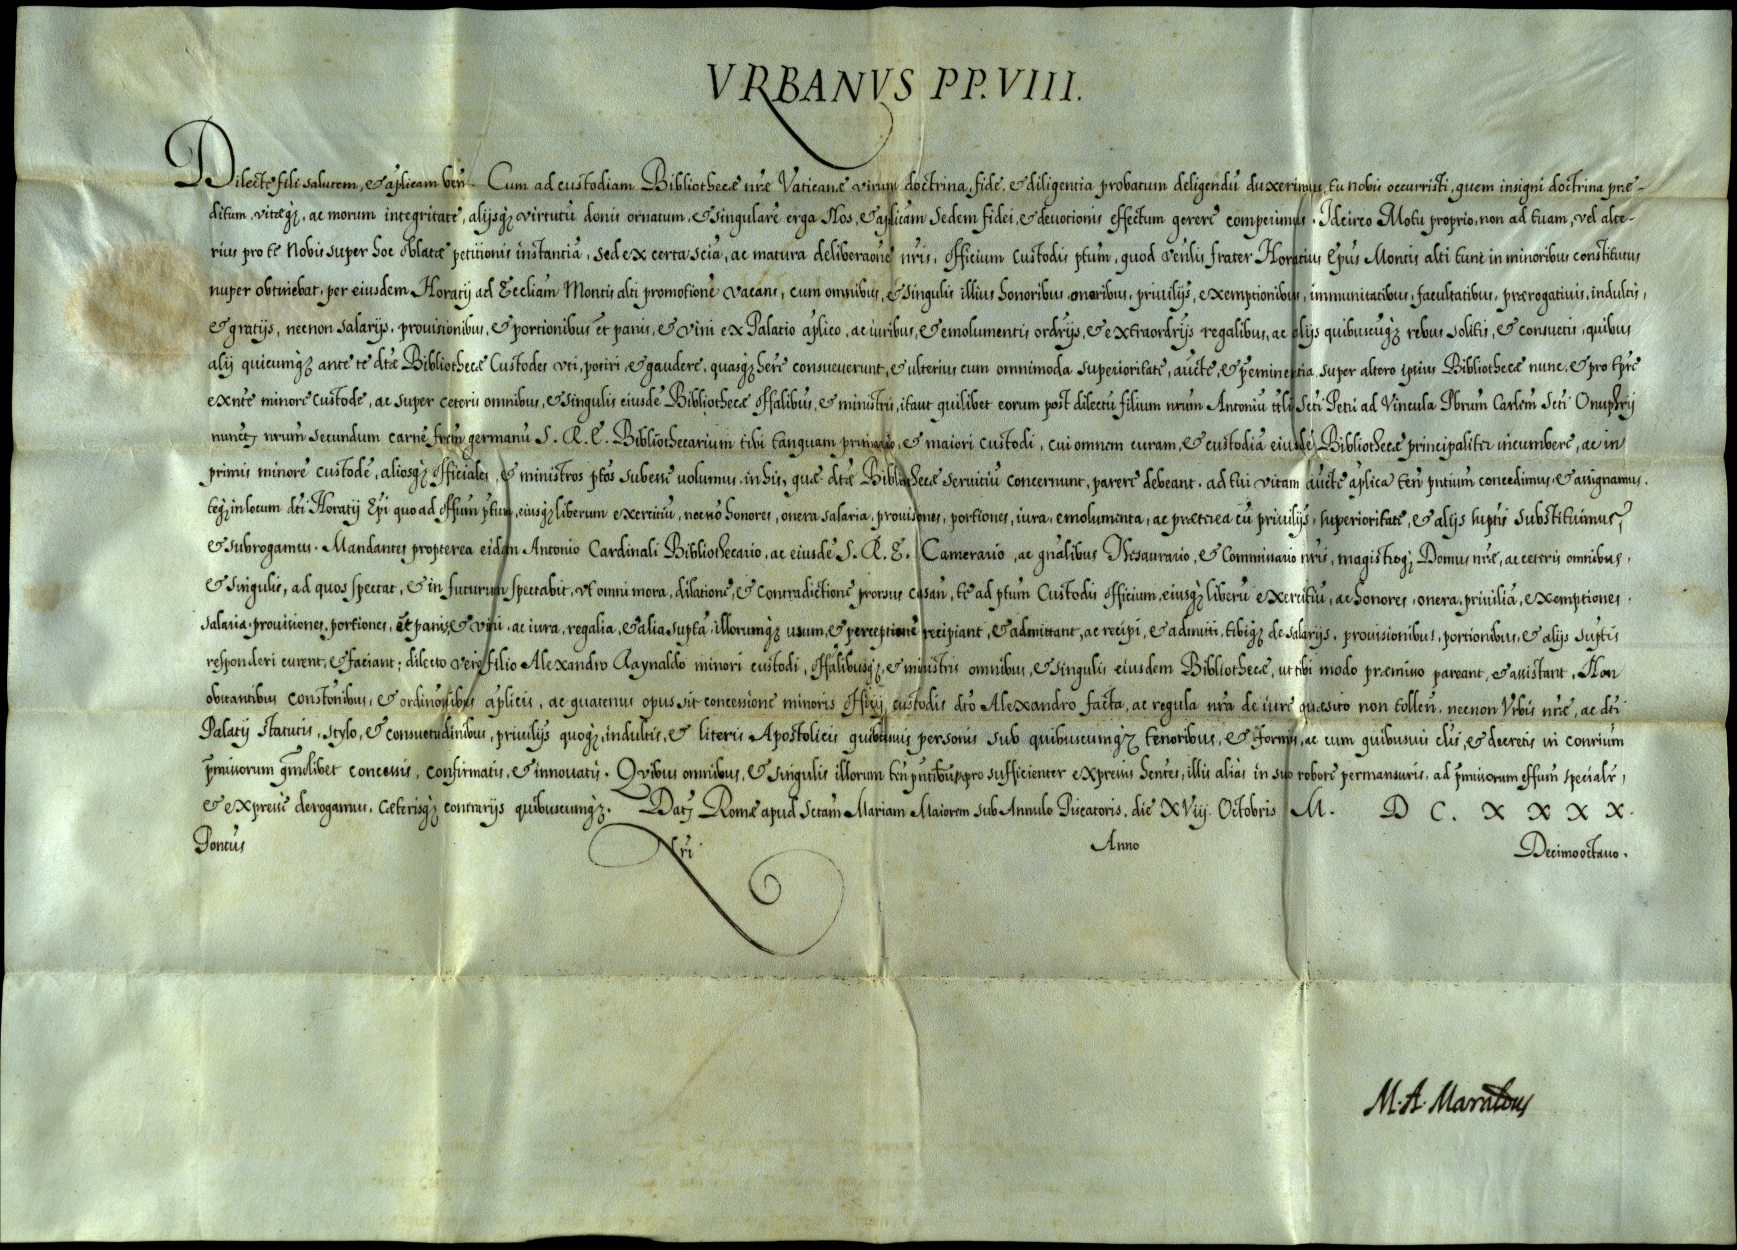 VRBANVS PP. VIII.
Dilecte fili salutem, & aplicam ben. Cum ad custodiam Bibliothecæ nræ Vaticanæ virum doctrina, fide, & diligentia probatum deligendū duxerimus, tu nobis occurristi, quem insigni doctrina præ-
ditum, vitæq;, ac morum integritate, alijsq; virtutū donis ornatum, & singularē erga Nos, & aplicam Sedem fidei, & devotionis effectum gerere comperimus. Idcirco Motu proprio, non ad tuam, vel alte-
rius pro te Nobis super hoc oblatæ petitionis instantiā, sed ex certa sciā, ac matura deliberaōne nris, officium Custodis ptum, quod Venlis frater Horatius Epus Montis alti tunc in minoribus constitutus
nuper obtinebat, per eiusdem Horatij ad Eccliam Montis alti promotionē vacans, cum omnibus, & singulis illius honoribus, onoribus, priuilijs, exemptionibus, immunitatibus, facultatibus, prærogatiuis, indultis,
& gratijs, necnon salarijs, prouisionibus, & portionibus et panis, & vini ex Palatio aplico, ac iuribus, & emolumentis ordrijs, & extraordrijs regalibus, ac alijs quibuscuq; rebus solitis, & consuetis, quibus
alij quicumq; ante te dtæ Bibliothecæ Custodes vti, potiri, & gaudere, quasq; here consueuerunt, & ulterius cum omnimoda superioritate, aucte, & peminentia super altero ipsius Bibliothecæ nunc, & pro tpre
exnte minore Custode, ac super ceteris omnibus, & singulis eiusdē Bibliothecæ offalibus, & ministris, itaut quilibet eorum post dilectū filium nrum Antoniū ttli Scti Petri ad Vincula Pbrum Carlem Scti Onuphrij
nuncy nrum secundum carnē frem germanū S. R. E. Bibliothecarium tibi tanquam primario, & maiori custodi, cui omnem curam, & custodiā eiusdē Bibliothecæ principaliter incumbere, ac in
primis minorē custodē, aliosq; officiales, & ministros ptos subesse uolumus in his, quæ dtæ Bibliothecæ seruitiū concernunt, parere debeant, ad tui vitam aucte aplica ten pntium concedimus, & assignamus,
teq; in locum dti Horatij Epi quo ad offum ptum, eiusq; liberum exercitiū, necnō honores, onera salaria, prouisiones, portiones, iura, emolumenta, ac præterea cū priuilijs, superioritate, & alijs suptis substituimus,
& subrogamus. Mandantes propterea eidem Antonio Cardinali Bibliothecario, ac eiusdē S. R. E. Camerario, ac gnalibus Thesaurario, & Commissario nris, magistroq; Domus nræ, ac ceteris omnibus,
& singulis, ad quos spectat, & in futurum spectabit, vt omni mora, dilatione, & contradictione prorsus cessan, te ad ptum Custodis officium, eiusq; liberū exercitiū, ac honores, onera, priuilia, exemptiones,
salaria, prouisiones, portiones, et panis, & vini, ac iura, regalia, & alia supta, illorumq; usum, & perceptionē recipiant, & admittant, ac recipi, & admitti, tibiq; de salarijs, prouisionibus, portionibus, & alijs suptis
responderi curent, & faciant; dilecto vero filio Alexandro Raynaldo minori custodi, offalibusq;, & ministris omnibus, & singulis eiusdem Bibliothecæ, ut tibi modo præmisso pareant, & assistant. Non
obstantibus constōnibus, & ordinōnibus aplicis, ac quatenus opus sit concessione minoris officij custodis dto Alexandro facta, ac regula nra de iure quæsito non tollen, necnon Vrbis nræ, ac dti
Palatij statutis, stylo, & consuetudinibus, priuilijs quoq;, indultis, & literis Apostolicis quibusuis personis sub quibuscumq; tenoribus, & formis, ac cum quibusuis clis, & decretis in conrium
pmissorum qmdlibet concessis, confirmatis, & innouatis. Quibus omnibus, & singulis illorum ten pntibus pro sufficienter expressis hentes, illis alias in suo robore permansuris, ad pmissorum effum specialr,
& expresse derogamus, Cæterisq; contrarijs quibuscumq;. Daty Romæ apud Sctam Mariam Maiorem sub Annulo Piscatoris, die XViij Octobris M. D C. X X X X.
Pontus nri Anno Decimooctauo.
M. A. Maraldus